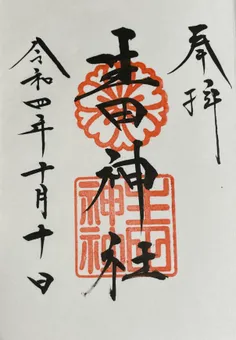 奉拝
生田神社
令和四年十月十日
生田
神社